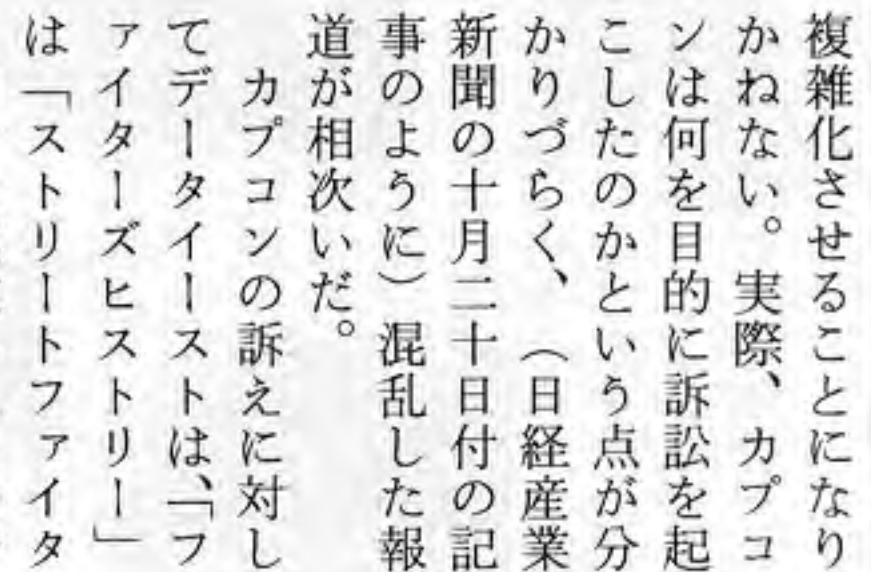 複雑化させることになり
かねない。実際、カプコ
ンは何を目的に訴訟を起
こしたのかという点が分
かりづらく、（日経産業
新聞の十月二十日付の記
事のように）混乱した報
道が相次いだ。
カプコンの訴えに対し
てデータイーストは、「フ
ァイターズヒストリー」
は「ストリートファイタ